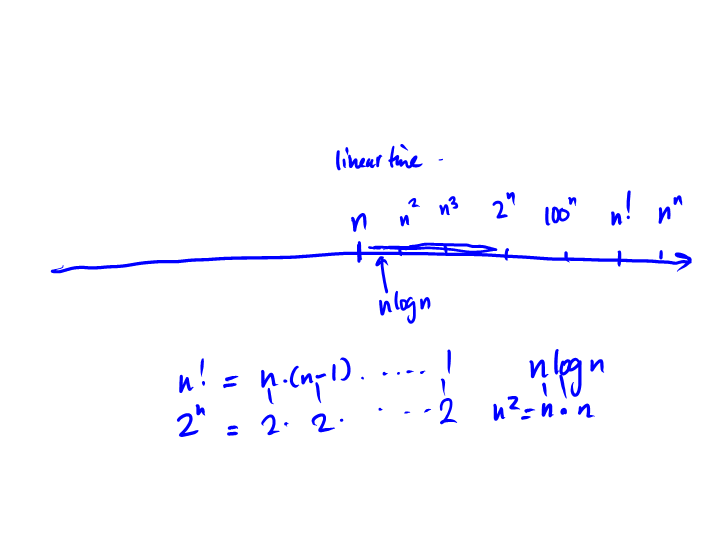 linear time
n n² n³ 2ⁿ 100ⁿ n! nⁿ
n log n
n! = n·(n-1). .... 1
2ⁿ = 2. 2. . ... 2
n log n
n² = n • n